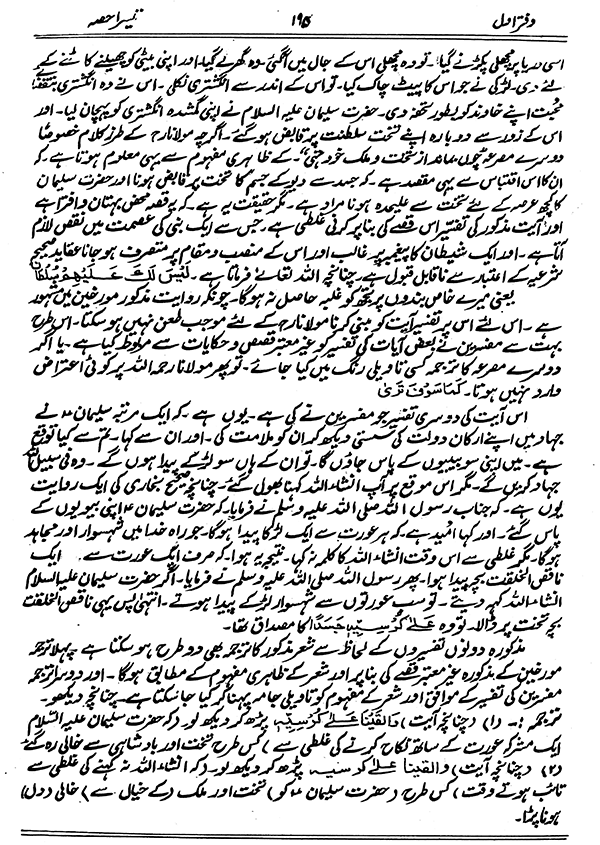 دفتر اول ۱۹۵ تیسرا حصہ
اسی دریا پر مچھلی پکڑنے گیا۔ تو وہ مچھلی اس کے جال میں آگئی۔ وہ گھر لے گیا۔ اور اپنی بیٹی کو چھیلنے کاٹنے کے
لئے دی۔ لڑکی نے جو اس کا پیٹ چاک کیا۔ تو اس کے اندر سے انگشتری نکلی۔ اس نے وہ انگشتری
محبت اپنے خاوند کو بطور تحفہ دی۔ حضرت سلیمان علیہ السلام نے اپنی گمشدہ انگشتری کو پہچان لیا۔ اور
اس کے زور سے دوبارہ اپنے تخت سلطنت پر قابض ہو گئے۔ اگرچہ مولانا رح کے طرز کلام خصوصاً
دوسرے مصرعہ چوں بماند از تخت و ملک خود تہی" کے ظاہری مفہوم سے یہی معلوم ہوتا ہے۔ کہ
ان کا اس اقتباس سے یہی مقصد ہے۔ کہ جسد سے دیو کے جسم کا تخت پر قابض ہونا اور حضرت سلیمان
کا کچھ عرصہ کے لئے تخت سے علیحدہ ہونا مراد ہے۔ مگر حقیقت یہ ہے۔ کہ یہ قصہ محض بہتان و افترا ہے
اور آیت مذکور کی تفسیر اس قصے کی بنا پر کرنی غلطی ہے۔ جس سے ایک نبی کی عصمت میں نقص لازم
آتا ہے۔ اور ایک شیطان کا پیغمبر پر غالب اور اس کے منصب و مقام پر متصرف ہو جانا عقاید صحیحہ
شرعیہ کے اعتبار سے ناقابل قبول ہے۔ چنانچہ اللہ تعالےٰ فرماتا ہے۔ لَیْسَ لَکَ عَلَیْہِمْ سُلْطَانٌ
یعنی میرے خاص بندوں پر تجھ کو غلبہ حاصل نہ ہوگا۔ چونکہ روایت مذکور مورخین میں مشہور
ہے۔ اس لئے اس پر تفسیر آیت کو مبنی کرنا مولانا رح کے لئے موجب طعن نہیں ہو سکتا۔ اس طرح
بہت سے مفسرین نے بعض آیات کی تفسیر کو غیر معتبر قصص و حکایات سے مربوط کیا ہے۔ یا اگر
دوسرے مصرعہ کا ترجمہ کسی تاویلی رنگ میں کیا جائے۔ تو پھر مولانا رحمہ اللہ پر کوئی اعتراض
وارد نہیں ہوتا۔ کَمَا سَوْفَ تَرٰی
اس آیت کی دوسری تفسیر جو مفسرین نے کی ہے۔ یوں ہے۔ کہ ایک مرتبہ سلیمان ؑ نے
جہاد میں اپنے ارکان دولت کی سستی دیکھ کر ان کو ملامت کی۔ اور ان سے کہا۔ تم سے کیا توقع
ہے۔ میں اپنی سو بیبیوں کے پاس جاؤں گا۔ تو ان کے ہاں سو لڑکے پیدا ہوں گے۔ وہ فی سبیل اللہ
جہاد کریں گے۔ مگر اس موقع پر آپ انشاء اللہ کہنا بھول گئے۔ چنانچہ صحیح بخاری کی ایک روایت
یوں ہے۔ کہ جناب رسول اللہ صلی اللہ علیہ وسلم نے فرمایا۔ کہ حضرت سلیمان ؑ اپنی بیویوں کے
پاس گئے۔ اور کہا امید ہے۔ کہ ہر عورت سے ایک لڑکا پیدا ہوگا۔ جو راہ خدا میں شہسوار اور مجاہد
ہوگا۔ مگر غلطی سے اس وقت انشاء اللہ کا کلمہ نہ کہا۔ نتیجہ یہ ہوا۔ کہ صرف ایک عورت سے ایک
ناقص الخلقت بچہ پیدا ہوا۔ پھر رسول اللہ صلی اللہ علیہ وسلم نے فرمایا۔ اگر حضرت سلیمان علیہ السلام
انشاء اللہ کہہ دیتے۔ تو سب عورتوں سے شہسوار لڑکے پیدا ہوتے۔ انتہیٰ پس یہی ناقص الخلقت
بچہ تخت پر ڈالا۔ تو وہ عَلٰی کُرْسِیِّہٖ جَسَدًا کا مصداق تھا۔
مذکورہ دونوں تفسیروں کے لحاظ سے شعر مذکور کا ترجمہ بھی دو طرح ہو سکتا ہے۔ پہلا ترجمہ
مورخین کے مذکورہ غیر معتبر قصے کی بنا پر اور شعر کے ظاہری مفہوم کے مطابق ہوگا۔ اور دوسرا ترجمہ
مفسرین کی تفسیر کے موافق اور شعر کے مفہوم کو تاویلی جامہ پہنا کر کیا جا سکتا ہے۔ چنانچہ دیکھو۔
ترجمہ :۔ (۱) (چنانچہ آیت) وَاَلْقَیْنَا عَلٰی کُرْسِیِّہٖ پڑھ کر دیکھ لو (کہ حضرت سلیمان علیہ السلام
ایک مشرکہ عورت کے ساتھ نکاح کرنے کی غلطی سے) کس طرح تخت اور بادشاہی سے خالی رہ گئے۔
(۲) (چنانچہ آیت) والقینا علیٰ کرسیہ پڑھ کر دیکھ لو (کہ انشاء اللہ نہ کہنے کی غلطی سے
تائب ہوتے وقت) کس طرح (حضرت سلیمان ؑ کو) تخت اور ملک (کے خیال سے) خالی (دل)
ہونا پڑا۔